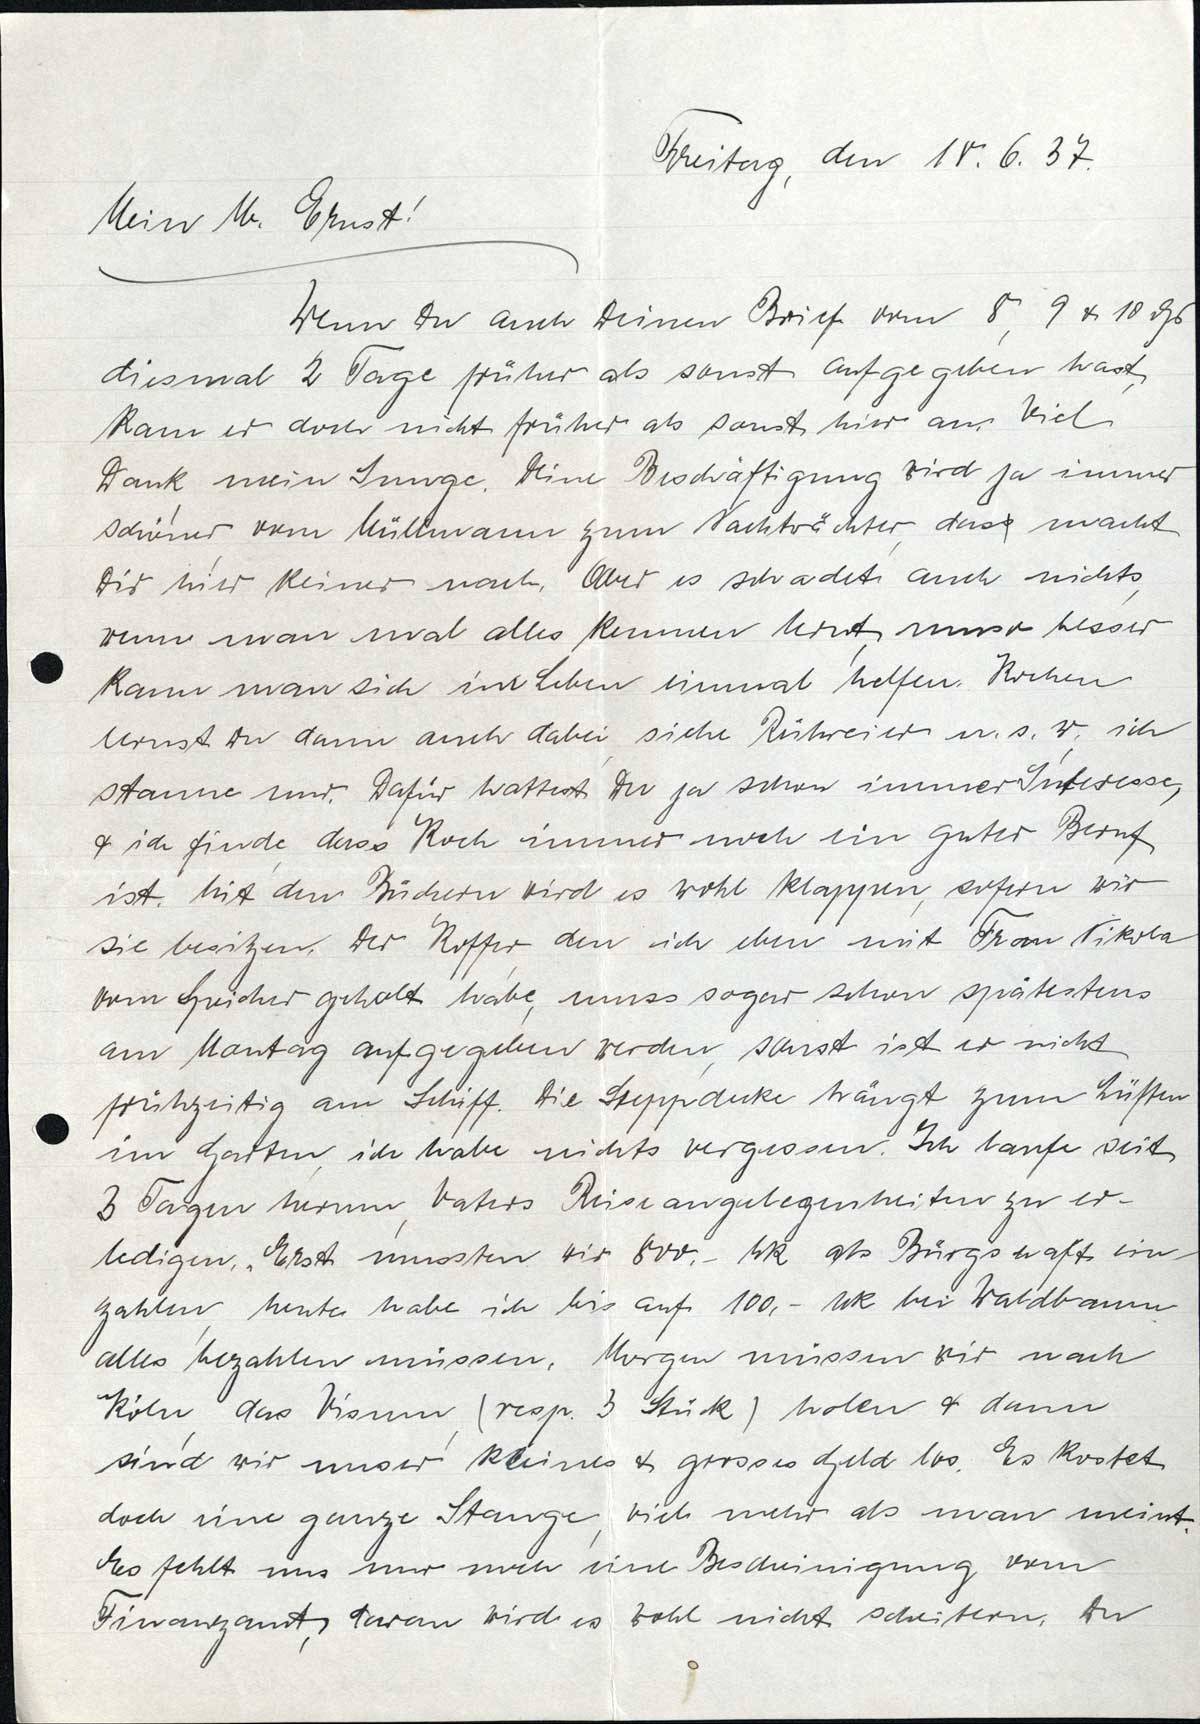 Freitag, den 18. 6. 37.
Mein lb. Ernst!
Wenn Du auch Deinen Brief vom 8, 9 & 10 dfs
diesmal 2 Tage früher als sonst aufgegeben hast,
kam er doch nicht früher als sonst hier an. Viel
Dank mein Junge. Deine Beschäftigung wird ja immer
schöner, vom Müllmann zum Nachtwächter, das macht
Dir hier keiner nach. Aber es schadet auch nichts,
wenn man mal alles kennen lernt, umso besser
kann man sich im Leben einmal helfen. Kochen
lernst Du dann auch dabei, siehe Rühreier u. s. w. ich
staune nur. Dafür hattest Du ja schon immer Interesse,
& ich finde, dass Koch immer noch ein guter Beruf
ist. Mit den Büchern wird es wohl klappen, sofern wir
sie besitzen. Der Koffer, den ich eben mit Frau Nikola
vom Speicher geholt habe, muss sogar schon spätestens
am Montag aufgegeben werden, sonst ist er nicht
frühzeitig am Schiff. Die Steppdecke hängt zum Lüften
im Garten, ich habe nichts vergessen. Ich laufe seit
3 Tagen herum, Vaters Reiseangelegenheiten zu er-
ledigen. Erst mussten wir 800,- Mk als Bürgschaft ein-
zahlen, heute habe ich bis auf 100,- Mk bei Waldbaum
alles bezahlen müssen. Morgen müssen wir nach
Köln, das Visum, (resp. 3 Stück) holen & dann
sind wir unser kleines & grosses Geld los. Es kostet
doch eine ganze Stange, viel mehr als man meint.
Es fehlt uns nur noch eine Bescheinigung vom
Finanzamt, daran wird es wohl nicht scheitern. Du